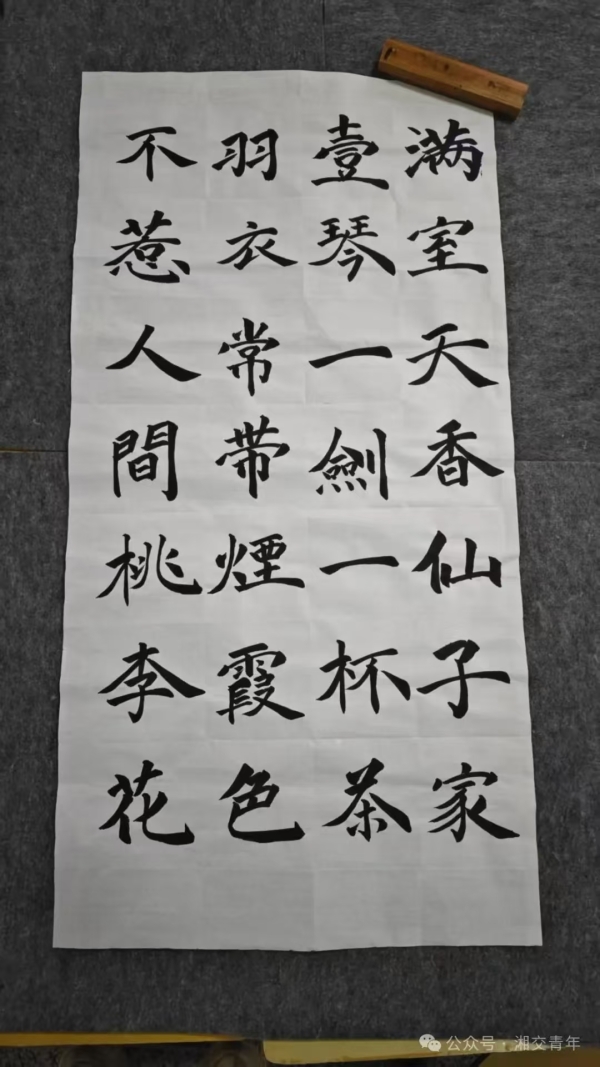 满室天香仙子家
壹琴一劍一杯茶
羽衣常带煙霞色
不惹人間桃李花
公众号·湘交青年